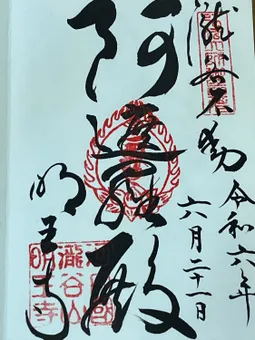 瀧谷不動
令和六年
六月二十一日
阿遮羅殿
明王寺
河内國
瀧谷山
明王寺